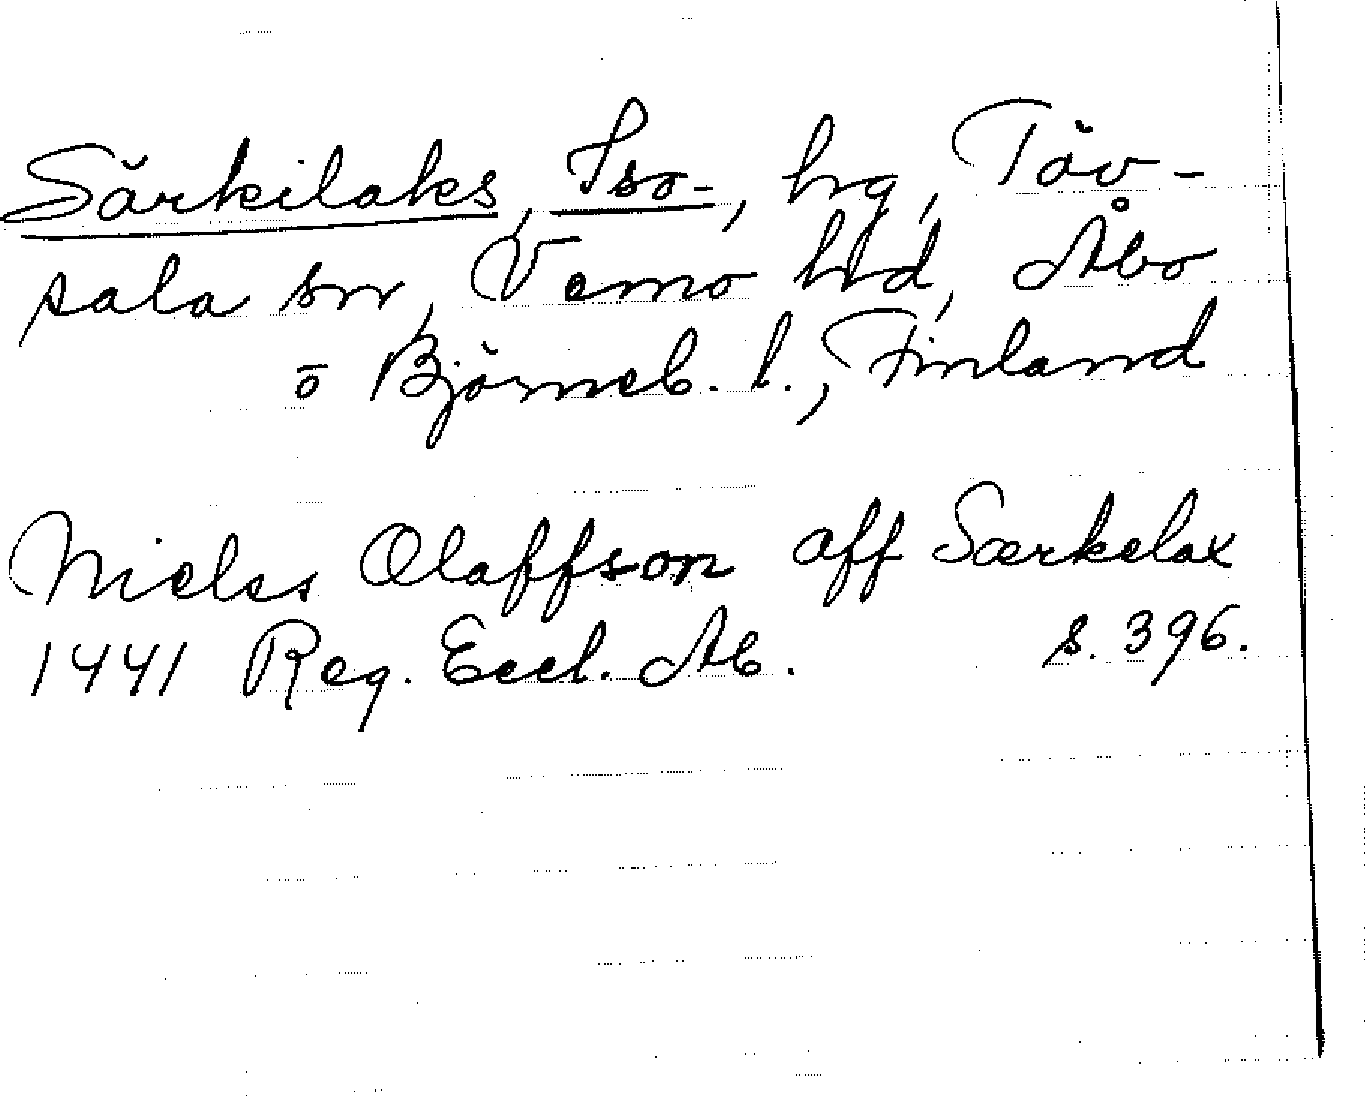 Särkilaks, Iso-, hg, Töv-
sala sn, Vemo hd, Åbo
o Björneb. l., Finland
Nielss Olaffson aff Særkelax
1441 Reg. Eccl. Ab. s. 396.